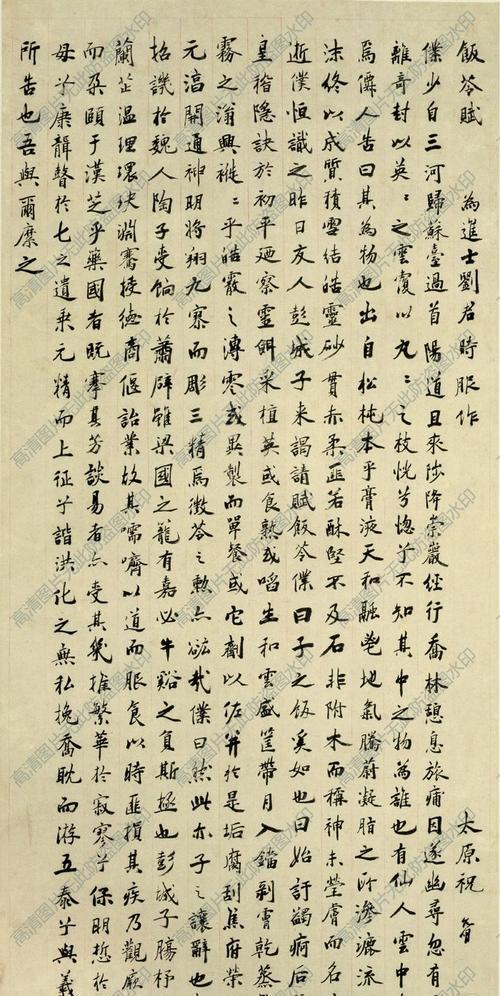 飯苓賦 為進士劉君時服作 太原祝
僕少自三河歸蘇臺過首陽道且來陟降崇巖經行喬林憩息旅痡因遂幽尋忽有
離奇封以英〻之雲濱以丸〻之枝恍兮惚兮不知其中之物為誰也有仙人雲中
焉僊人告曰其為物也出自松杶本乎膏液天和融鬯地氣騰蔚凝脂之所滲漉流
沫終以成質積雪結皓靈砂貫赤柔匪若酥堅不及石非附木而稱神未瑩膚而名
逝僕恒識之昨日友人彭城子来謁請賦飯苓僕曰子之飯奚如也曰始訏蠲痾后
皇稽隱訣於初平迺察靈餌采植英或食熟或啗生和雲盛筐帶月入鐺剝膚乾蒸
霧之滃興褷〻乎皓霰之漙零或異製而單餐或它劑以佐并於是垢腐刮焦府榮
元滀開通神明將翔九寮而彫三精焉徵苓之勲亦竑哉僕曰然此亦子之讓辭也
招譏於魏人陶子受餉於蕭辟雖梁國之寵有嘉必牛谿之負斯極也彭城子腸杼
蘭芷温理環玦淵騫接德商偃詒業故其嚅嚌以道而服食以時匪損其疾乃觀厥
而朶頤于漢芝乎藥國者既搴其芳談易者亦受其幾摧繁華於寂寥兮保明悊於
母兮康聾瞽於七之遺乗元精而上征兮諧洪化之無私挽喬耽而游五泰兮與羲
所告也吾與爾縻之